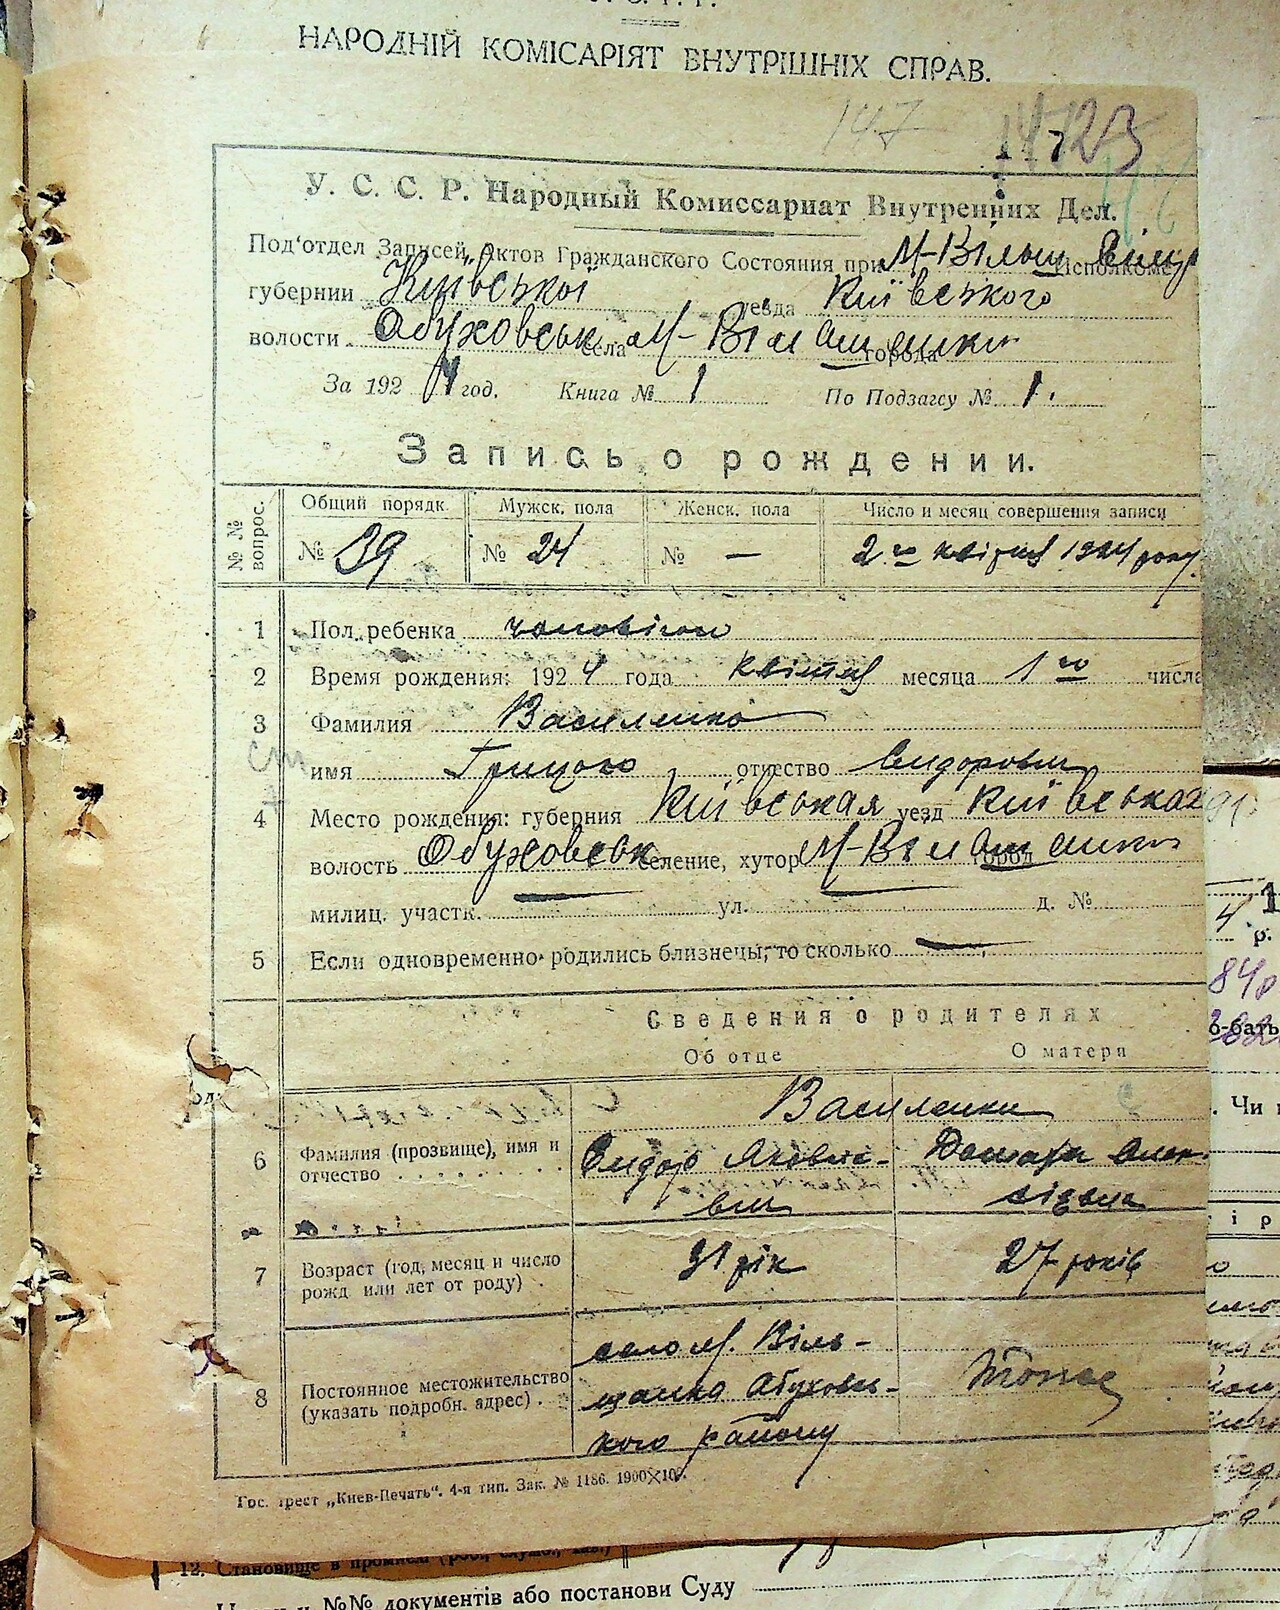 НАРОДНІЙ КОМІСАРІЯТ ВНУТРІШНІХ СПРАВ.
147
У. С. С. Р. Народный Комиссариат Внутренних Дел.
Под'отдел Записей Актов Гражданского Состояния при М-Вільш Исполкоме
губернии Київської уезда Київського
волости Обуховськ села М-Вільшанки города
За 1924 год. Книга № 1 По Подзагсу № 1.
Запись о рождении.
№ № вопрос. Общий порядк. Мужск. пола Женск. пола Число и месяц совершения записи
№ 39 № 24 № — 2го квітня 1924 року
1 Пол ребенка чоловічого
2 Время рождения: 1924 года квітня месяца 1го числа
3 Фамилия Василенко
имя Грицько отчество Сидорович
4 Место рождения: губерния Київська уезд Київська
волость Обуховськ селение, хутор М-Вільшанки город
милиц. участк. ул. д. №
5 Если одновременно родились близнецы, то сколько —
Сведения о родителях
Об отце О матери
Василенки
6 Фамилия (прозвище), имя и отчество Сидор Яковлевич Домаха
7 Возраст (год, месяц и число рожд. или лет от роду) 31 рік 27 років
8 Постоянное местожительство (указать подробн. адрес) село М. Вільшанка Обуховського району Тоже
Гос. трест „Киев-Печать". 4-я тип. Зак. № 1186. 1900×10
12. Становище в промислі
№№ документів або постанови Суду